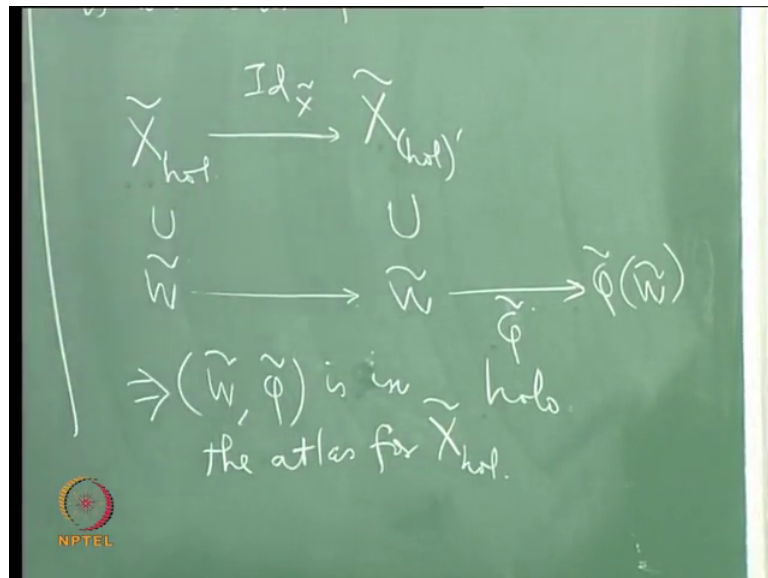 Id_X̃
X̃_hol. ⟶ X̃_(hol)'
∪ ∪
W̃ ⟶ W̃ ⟶ φ̃(W̃)
φ̃
⇒ (W̃, φ̃) is in holo.
the atlas for X̃_hol.
NPTEL